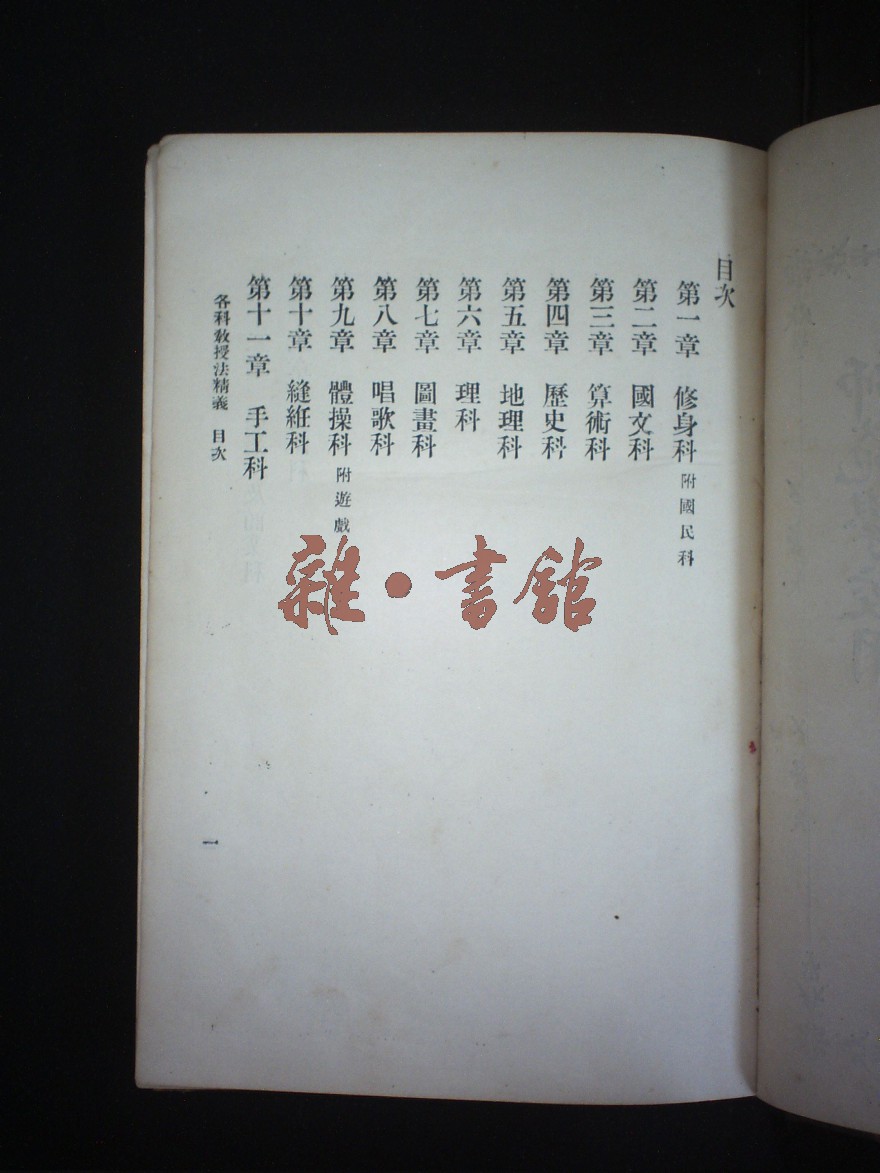 目次
第一章 修身科 附國民科
第二章 國文科
第三章 算術科
第四章 歷史科
第五章 地理科
第六章 理科
第七章 圖畫科
第八章 唱歌科
第九章 體操科 附遊戲
第十章 縫紝科
第十一章 手工科
各科教授法精義 目次
一
雜·書館